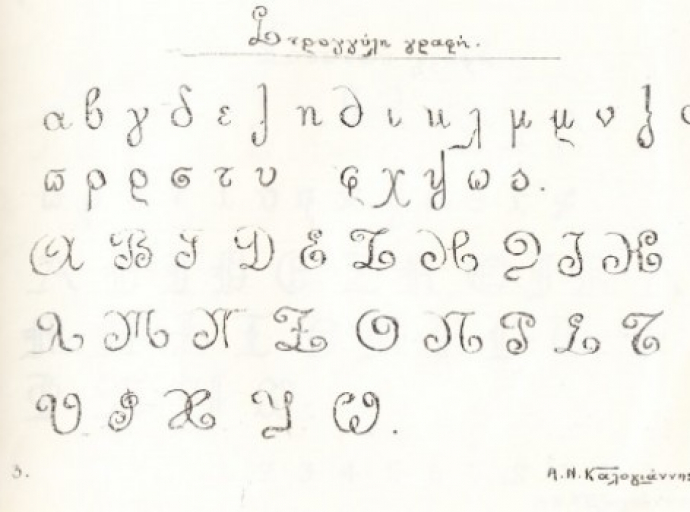 Στρογγύλη γραφή.
α β γ δ ε ζ η θ ι κ λ μ μ ν ξ ο
π ρ ρ σ τ υ φ χ ψ ω ς.
Α Β Γ Δ Ε Ζ Η Θ Ι Κ
Λ Μ Ν Ξ Ο Π Ρ Σ Τ
Υ Φ Χ Ψ Ω.
3. Α.Ν. Καλογιάννης